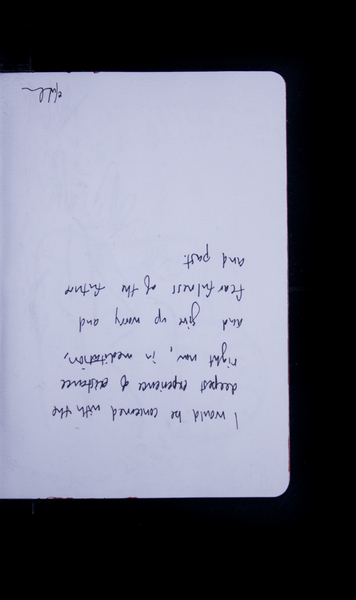 I would be concerned with the
deepest experience of existence
right now, in meditation,
and give up worry and
fearfulness of the future
and past.